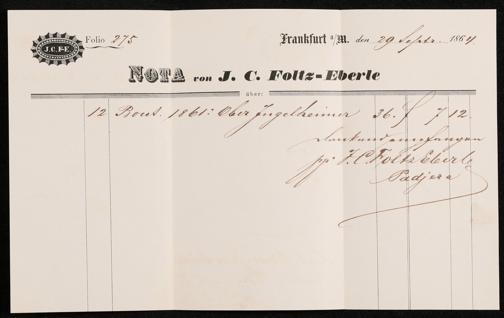 J.C.F-E.
Folio 275
Frankfurt a/M. den 29 Septr. 1864
NOTA von J. C. Foltz=Eberle
über:
12 Bout. 1861r Ober Ingelheimer 36 f 7 12.
dankend empfangen
pp. J. C. Foltz Eberle
Padjera